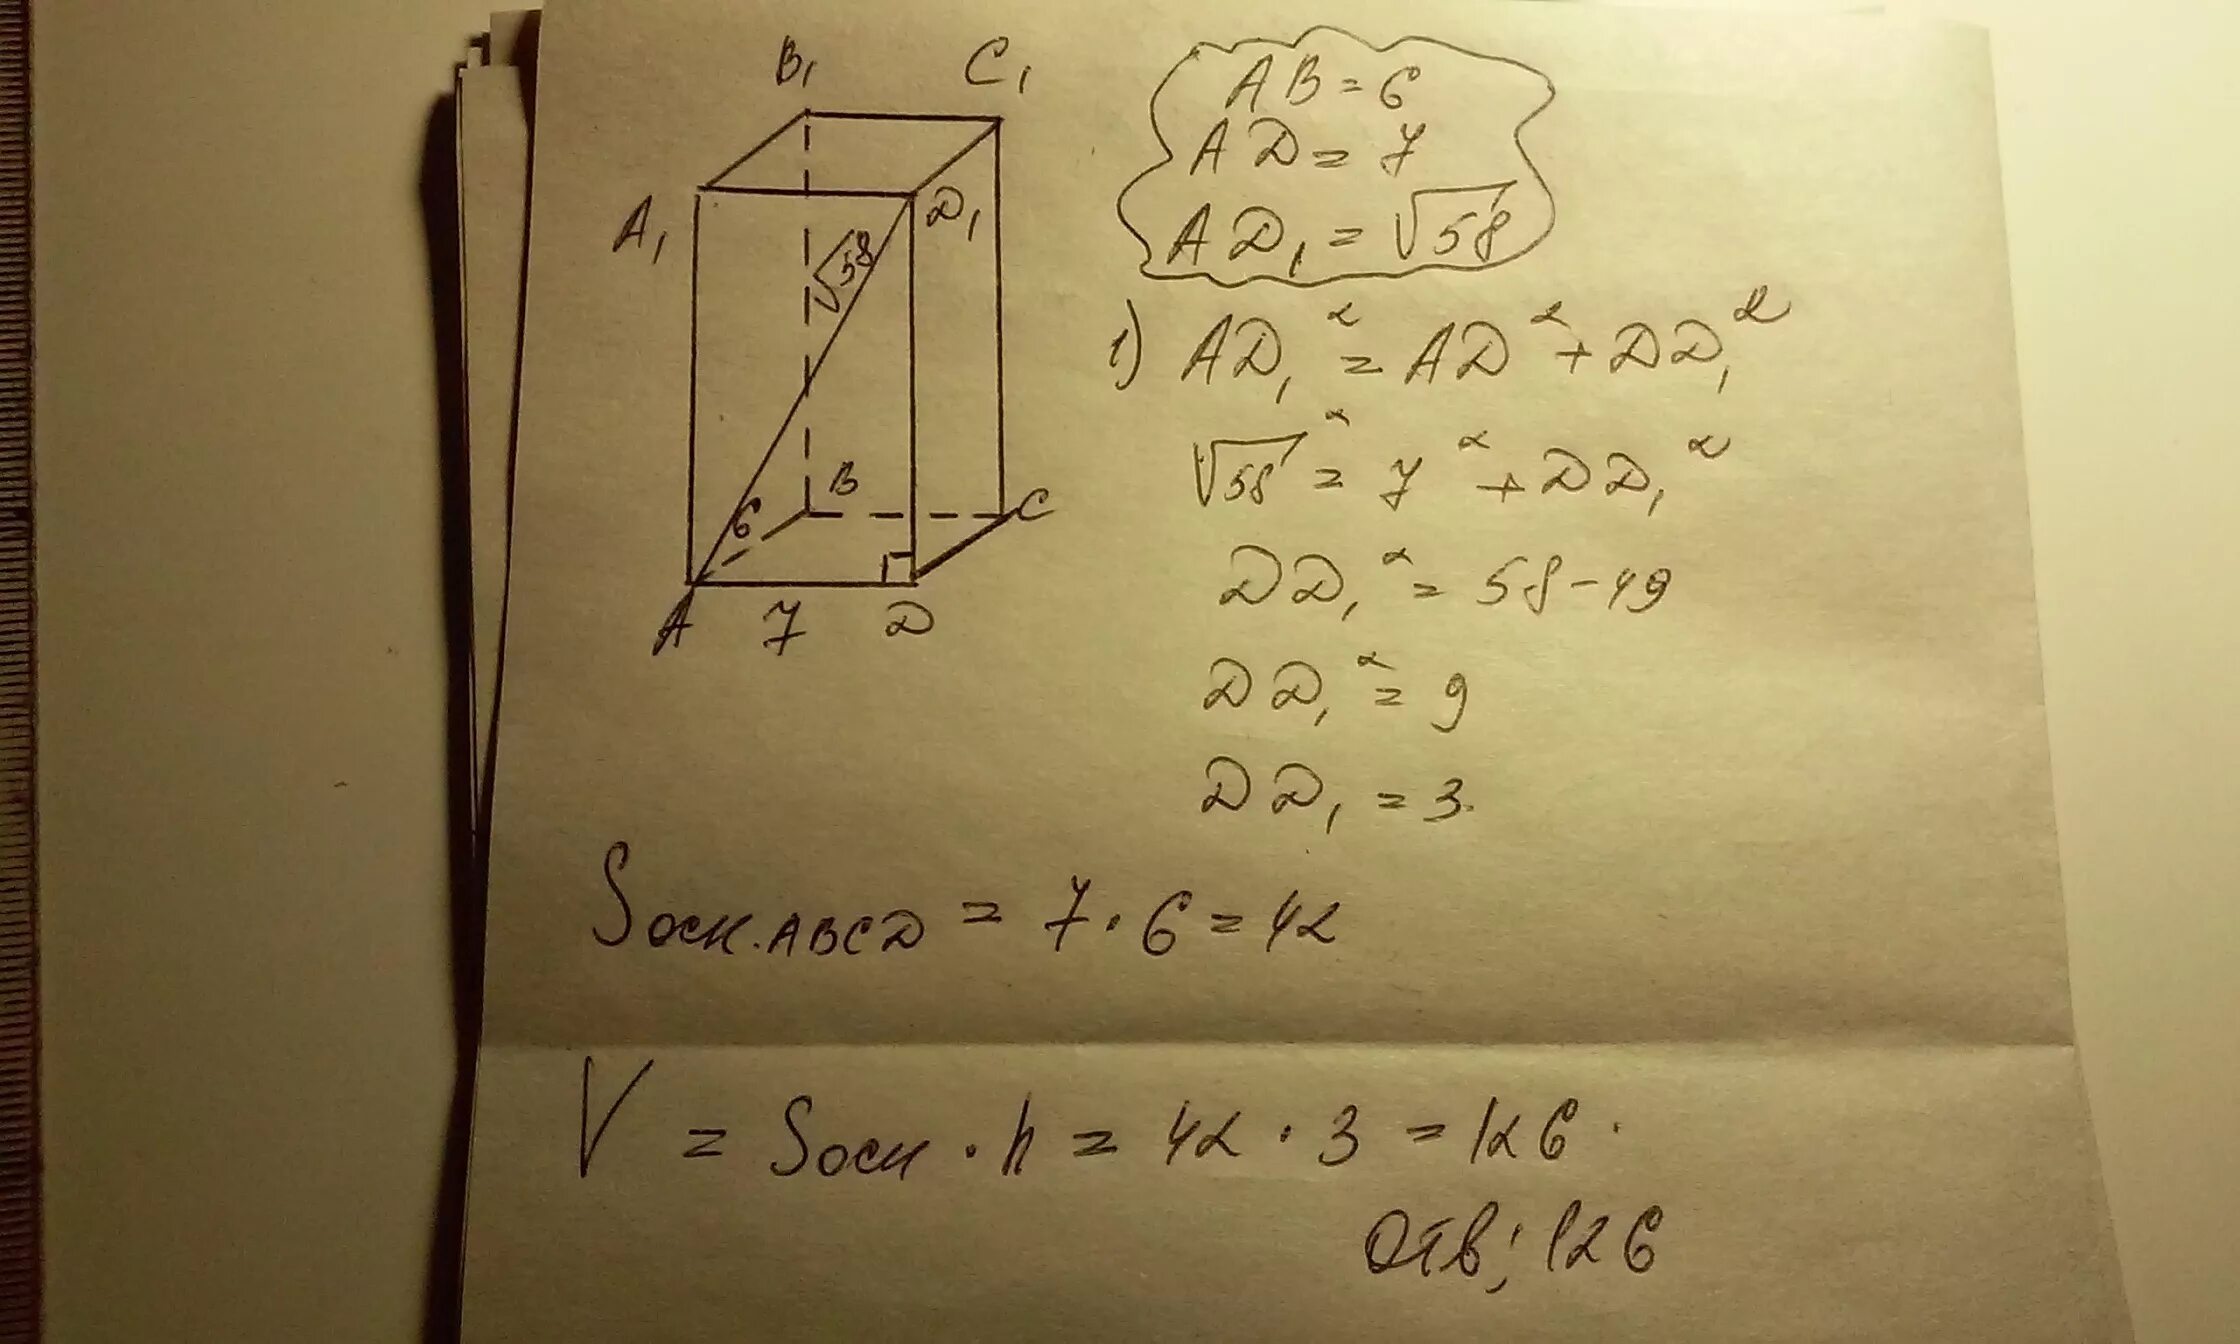 B₁ C₁
A₁ D₁
√58
6 B C
A 7 D
AB = 6
AD = 7
AD₁ = √58
1) AD₁² = AD² + DD₁²
√58² = 7² + DD₁²
DD₁² = 58 - 49
DD₁² = 9
DD₁ = 3.
Sосн.ABCD = 7 · 6 = 42
V = Sосн · h = 42 · 3 = 126.
Отв; 126